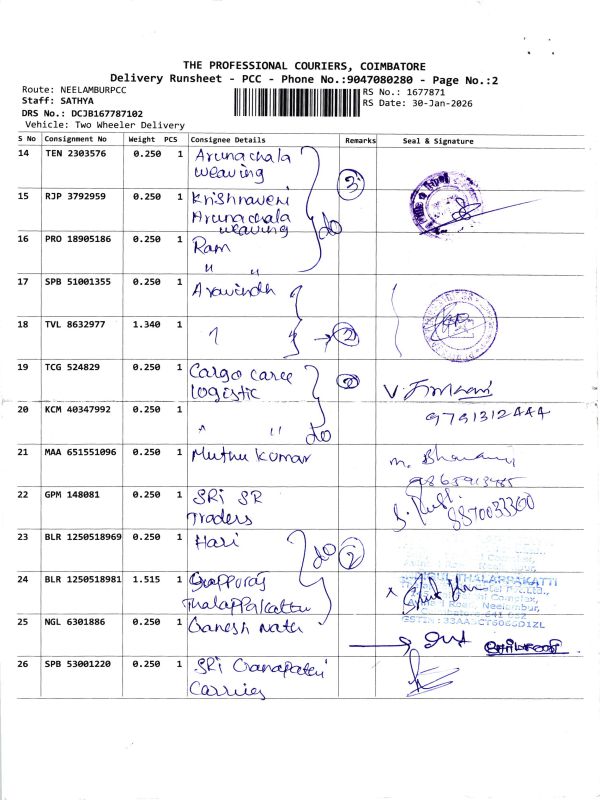 THE PROFESSIONAL COURIERS, COIMBATORE
Delivery Runsheet - PCC - Phone No.:9047080280 - Page No.:2
Route: NEELAMBURPCC
Staff: SATHYA
DRS No.: DCJB167787102
Vehicle: Two Wheeler Delivery
RS No.: 1677871
RS Date: 30-Jan-2026
S No Consignment No Weight PCS Consignee Details Remarks Seal & Signature
14 TEN 2303576 0.250 1 Arunachala
weaving
3
15 RJP 3792959 0.250 1 Krishnaveni
Arunachala
weaving
do
16 PRO 18905186 0.250 1 Ram
" "
17 SPB 51001355 0.250 1 Aravindh
18 TVL 8632977 1.340 1 2
19 TCG 524829 0.250 1 Cargo caree 2
logistic
20 KCM 40347992 0.250 1 " " do
21 MAA 651551096 0.250 1 Muthu Kumar
22 GPM 148081 0.250 1 SRi SR
Traders
8870033300
23 BLR 1250518969 0.250 1 Hari do 2
24 BLR 1250518981 1.515 1
Thalappakattu
THALAPPAKATTI
Neelambur,
25 NGL 6301886 0.250 1 Ganesh Nath
26 SPB 53001220 0.250 1 SRi Ganapathi
Carries